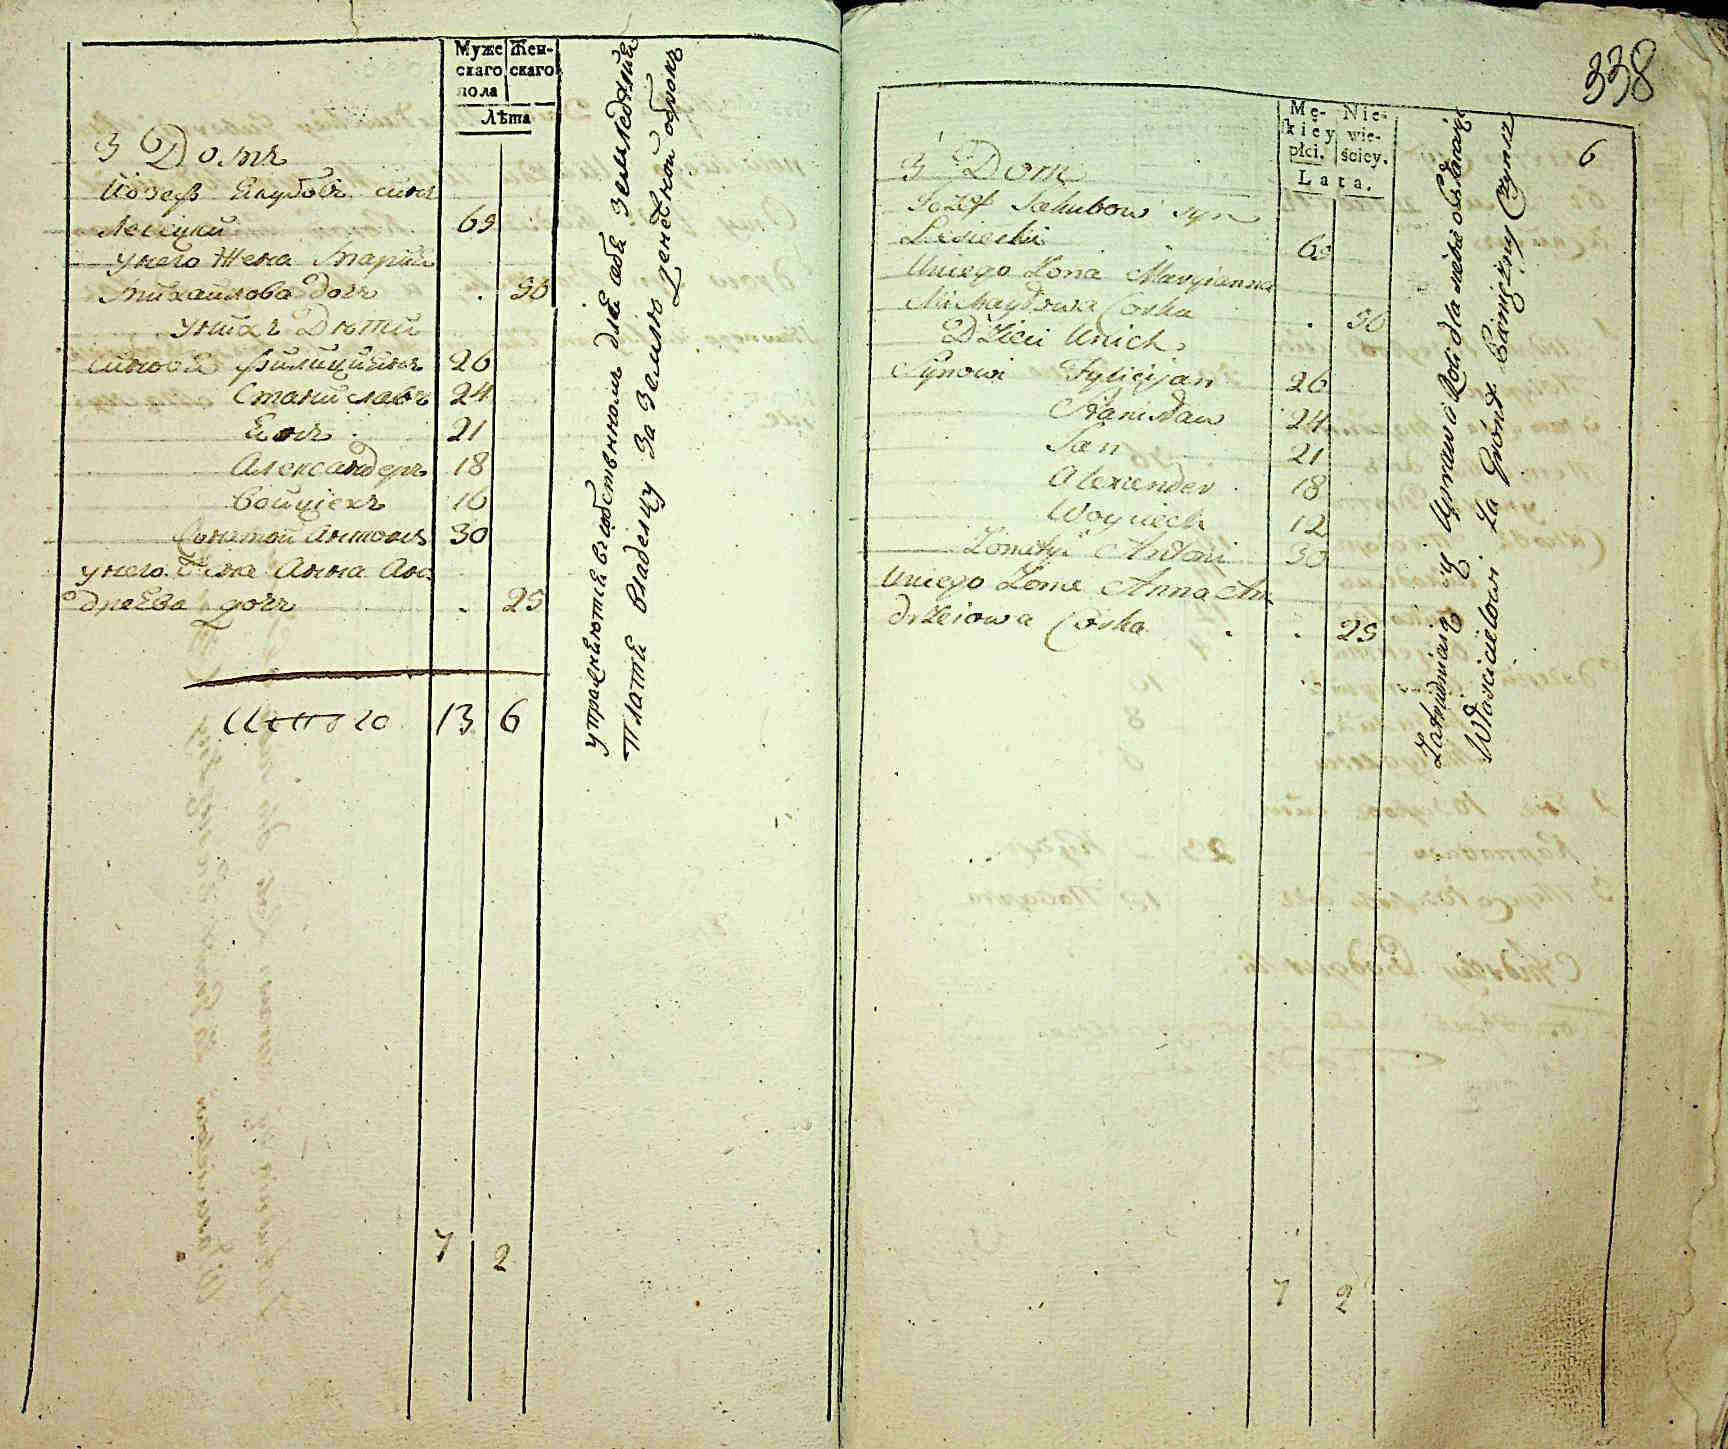 Муже
скаго
пола
Жен-
скаго
Лѣта
3 Домъ
Іозефъ Якубовъ синъ
Лесецкий 69
у него Жена Марiя
Михайлова дочь . 50
у нихъ Дѣти
синовя Филицiянъ 26
Станиславъ 24
Янъ 21
Александеръ 18
Войцiехъ 16
Антони 30
у него Жена Анна Ан
дреева дочь . 25
Итого 13 6
7 2
упражняются въ собственномъ для себя земледѣлiи
Платя владелцу за землю Денежной оброкъ
338
6
Mę-
skiey
płci.
Nie-
wie-
ściey.
Lata.
3 Dom
Jozef Jakubow syn
Lesiecki 69
Uniego Zona Maryianna
Michayłowa Corka . 50
Dzieci Unich
Synowi Felicyjan 26
Stanisław 24
Jan 21
Alexander 18
Woyciech 12
Antoni 30
Uniego Zona Anna An
drzeiowa Corka . . 25
7 2
Zatrudniaią się Uprawą Roli dla siebie
Włascicielowi Za Grónt Pieniężny Czynsz